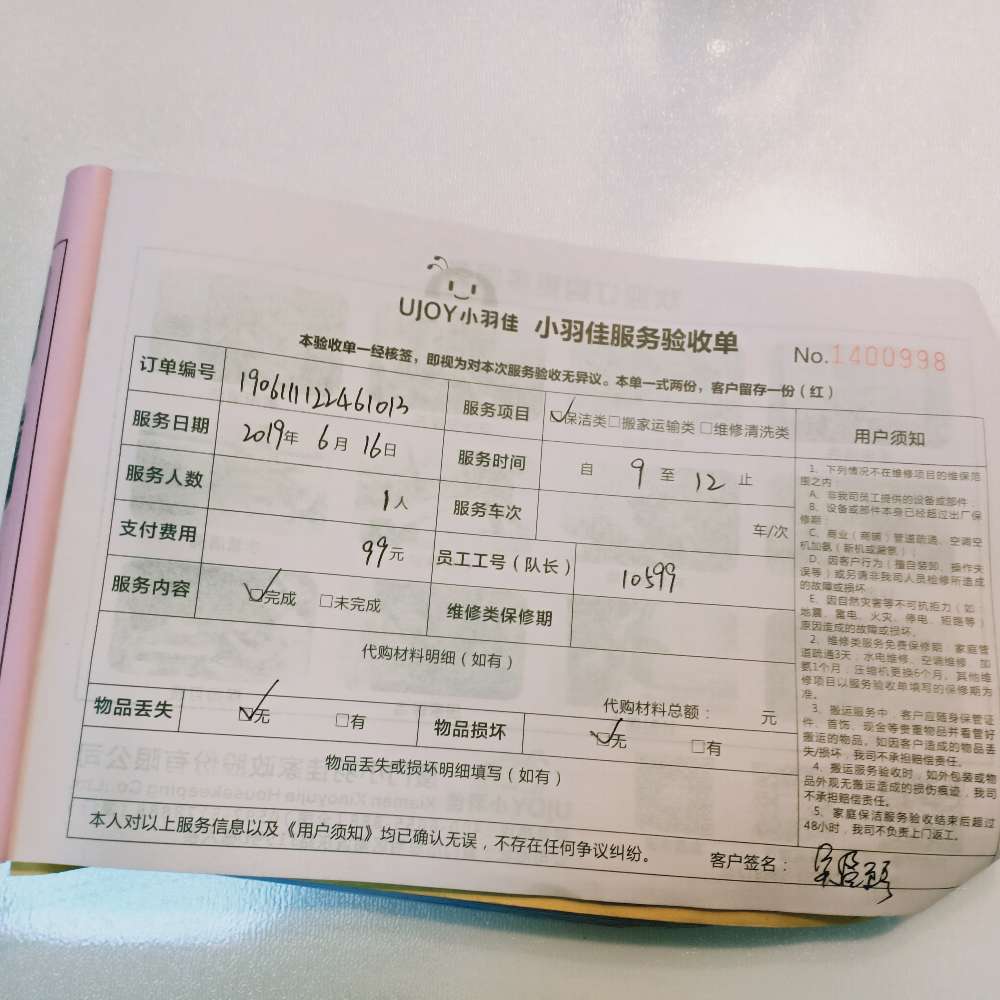 UJOY小羽佳 小羽佳服务验收单
No.1400998
本验收单一经核签，即视为对本次服务验收无异议。本单一式两份，客户留存一份（红）
订单编号 190611122461013 服务项目 保洁类□搬家运输类 □维修清洗类
服务日期 2019年 6月 16日 服务时间 自 9 至 12 止
服务人数 1人 服务车次 车/次
支付费用 99元 员工工号（队长） 10599
服务内容 完成 □未完成 维修类保修期
代购材料明细（如有）
代购材料总额： 元
物品丢失 无 □有 物品损坏 无 □有
物品丢失或损坏明细填写（如有）
本人对以上服务信息以及《用户须知》均已确认无误，不存在任何争议纠纷。 客户签名：
用户须知
1、下列情况不在维修项目的维保范
围之内
A、非我司员工提供的设备或部件；
B、设备或部件本身已经超过出厂保
修期；
C、商业（商铺）管道疏通、空调空
机加氨（新机或漏氨）；
D、因客户行为（擅自装卸、操作失
误等）或另请非我司人员检修所造成
的故障或损坏
E、因自然灾害等不可抗拒力（如：
地震、雷电、火灾、停电、短路等）
原因造成的故障或损坏。
2、维修类服务免费保修期：家庭管
道疏通3天，水电维修、空调维修、加
氨1个月，压缩机更换6个月，其他维
修项目以服务验收单填写的保修期为
准。
3、搬运服务中，客户应随身保管证
件、首饰、现金等贵重物品并看管好
搬运的物品，如因客户造成的物品丢
失/损坏，我司不承担赔偿责任。
4、搬运服务验收时，如外包装或物
品外观无搬运造成的损伤痕迹，我司
不承担赔偿责任。
5、家庭保洁服务验收结束后超过
48小时，我司不负责上门返工。